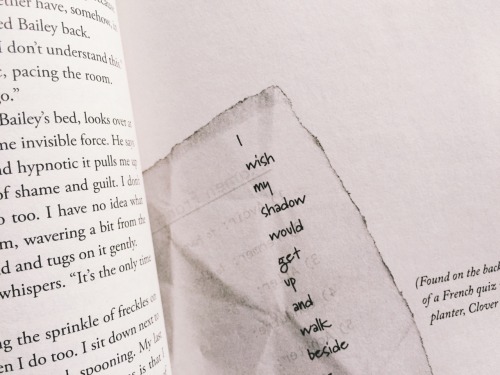 ether have, somehow,
ed Bailey back.
I don't understand this
, pacing the room.
go."
Bailey's bed, looks over at
me invisible force. He says
nd hypnotic it pulls me up
of shame and guilt. I don't
o too. I have no idea what
m, wavering a bit from the
d and tugs on it gently.
whispers. "It's the only time
ng the sprinkle of freckles on
en I do too. I sit down next to
spooning. My last
is that I
I
wish
my
shadow
would
get
up
and
walk
beside
(Found on the back
of a French quiz
planter, Clover